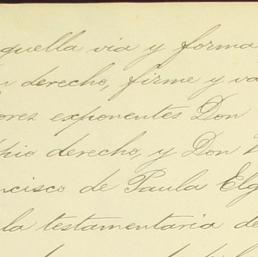 quella via y forma
n derecho, firme y va
ores exponentes Don
pio derecho, y Don
ncisco de Paula Elg
la testamentaria de